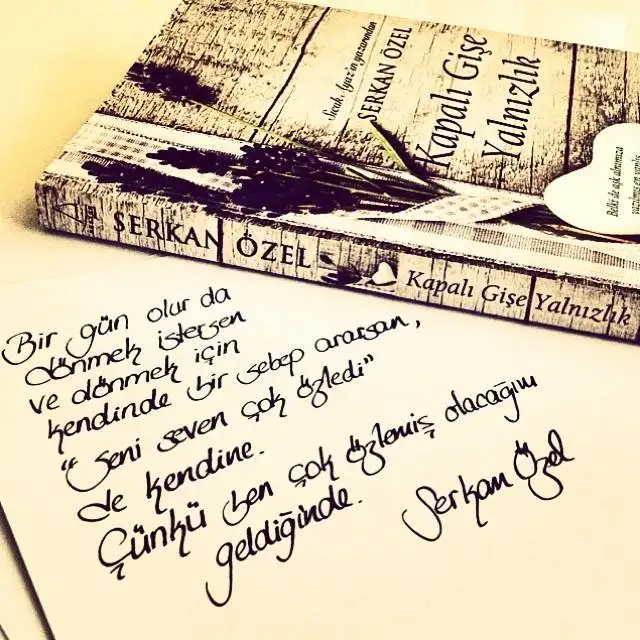 Sıcak, Ayaz'ın yazarından
SERKAN ÖZEL
Kapalı Gişe
Yalnızlık
Belki de aşk alnımıza
SERKAN ÖZEL Kapalı Gişe Yalnızlık
Bir gün olur da
dönmek istersen
ve dönmek için
kendinde bir sebep ararsan,
"Seni seven çok özledi"
de kendine.
Çünkü ben çok özlemiş olacağım
geldiğinde.
Serkan Özel